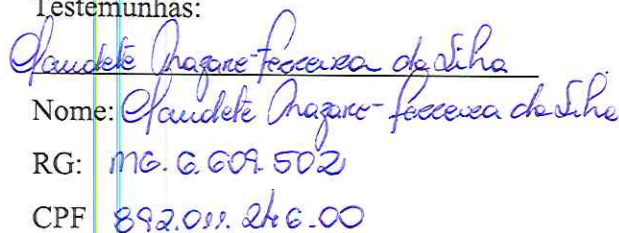 Testemunhas:
Claudete Nazare Ferreira da Silva
Nome: Claudete Nazare Ferreira da Silva
RG: MG. 6.609.502
CPF 892.011.246.00